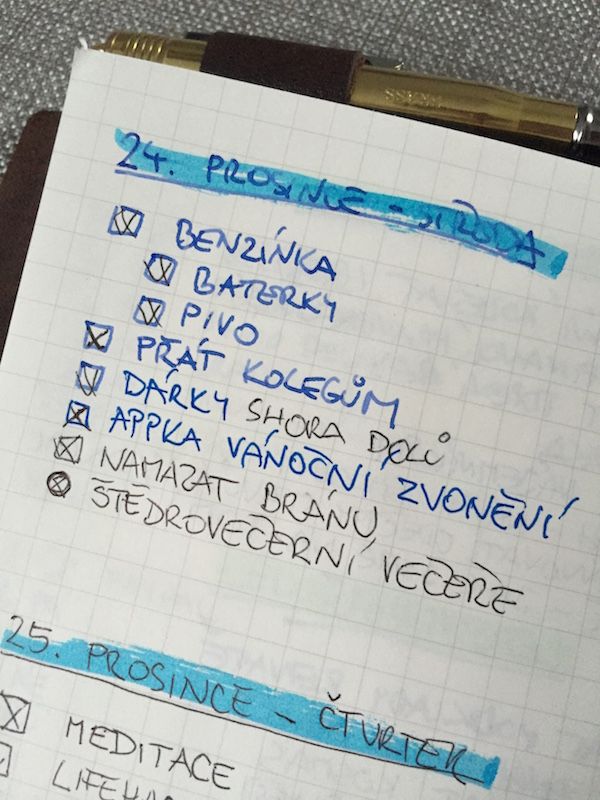 24. PROSINCE - STŘEDA
BENZÍNKA
BATERKY
PIVO
PŘÁT KOLEGŮM
DÁRKY SHORA DOLŮ
APPKA VÁNOČNÍ ZVONĚNÍ
NAMAZAT BRÁNU
ŠTĚDROVEČERNÍ VEČEŘE
25. PROSINCE - ČTVRTEK
MEDITACE